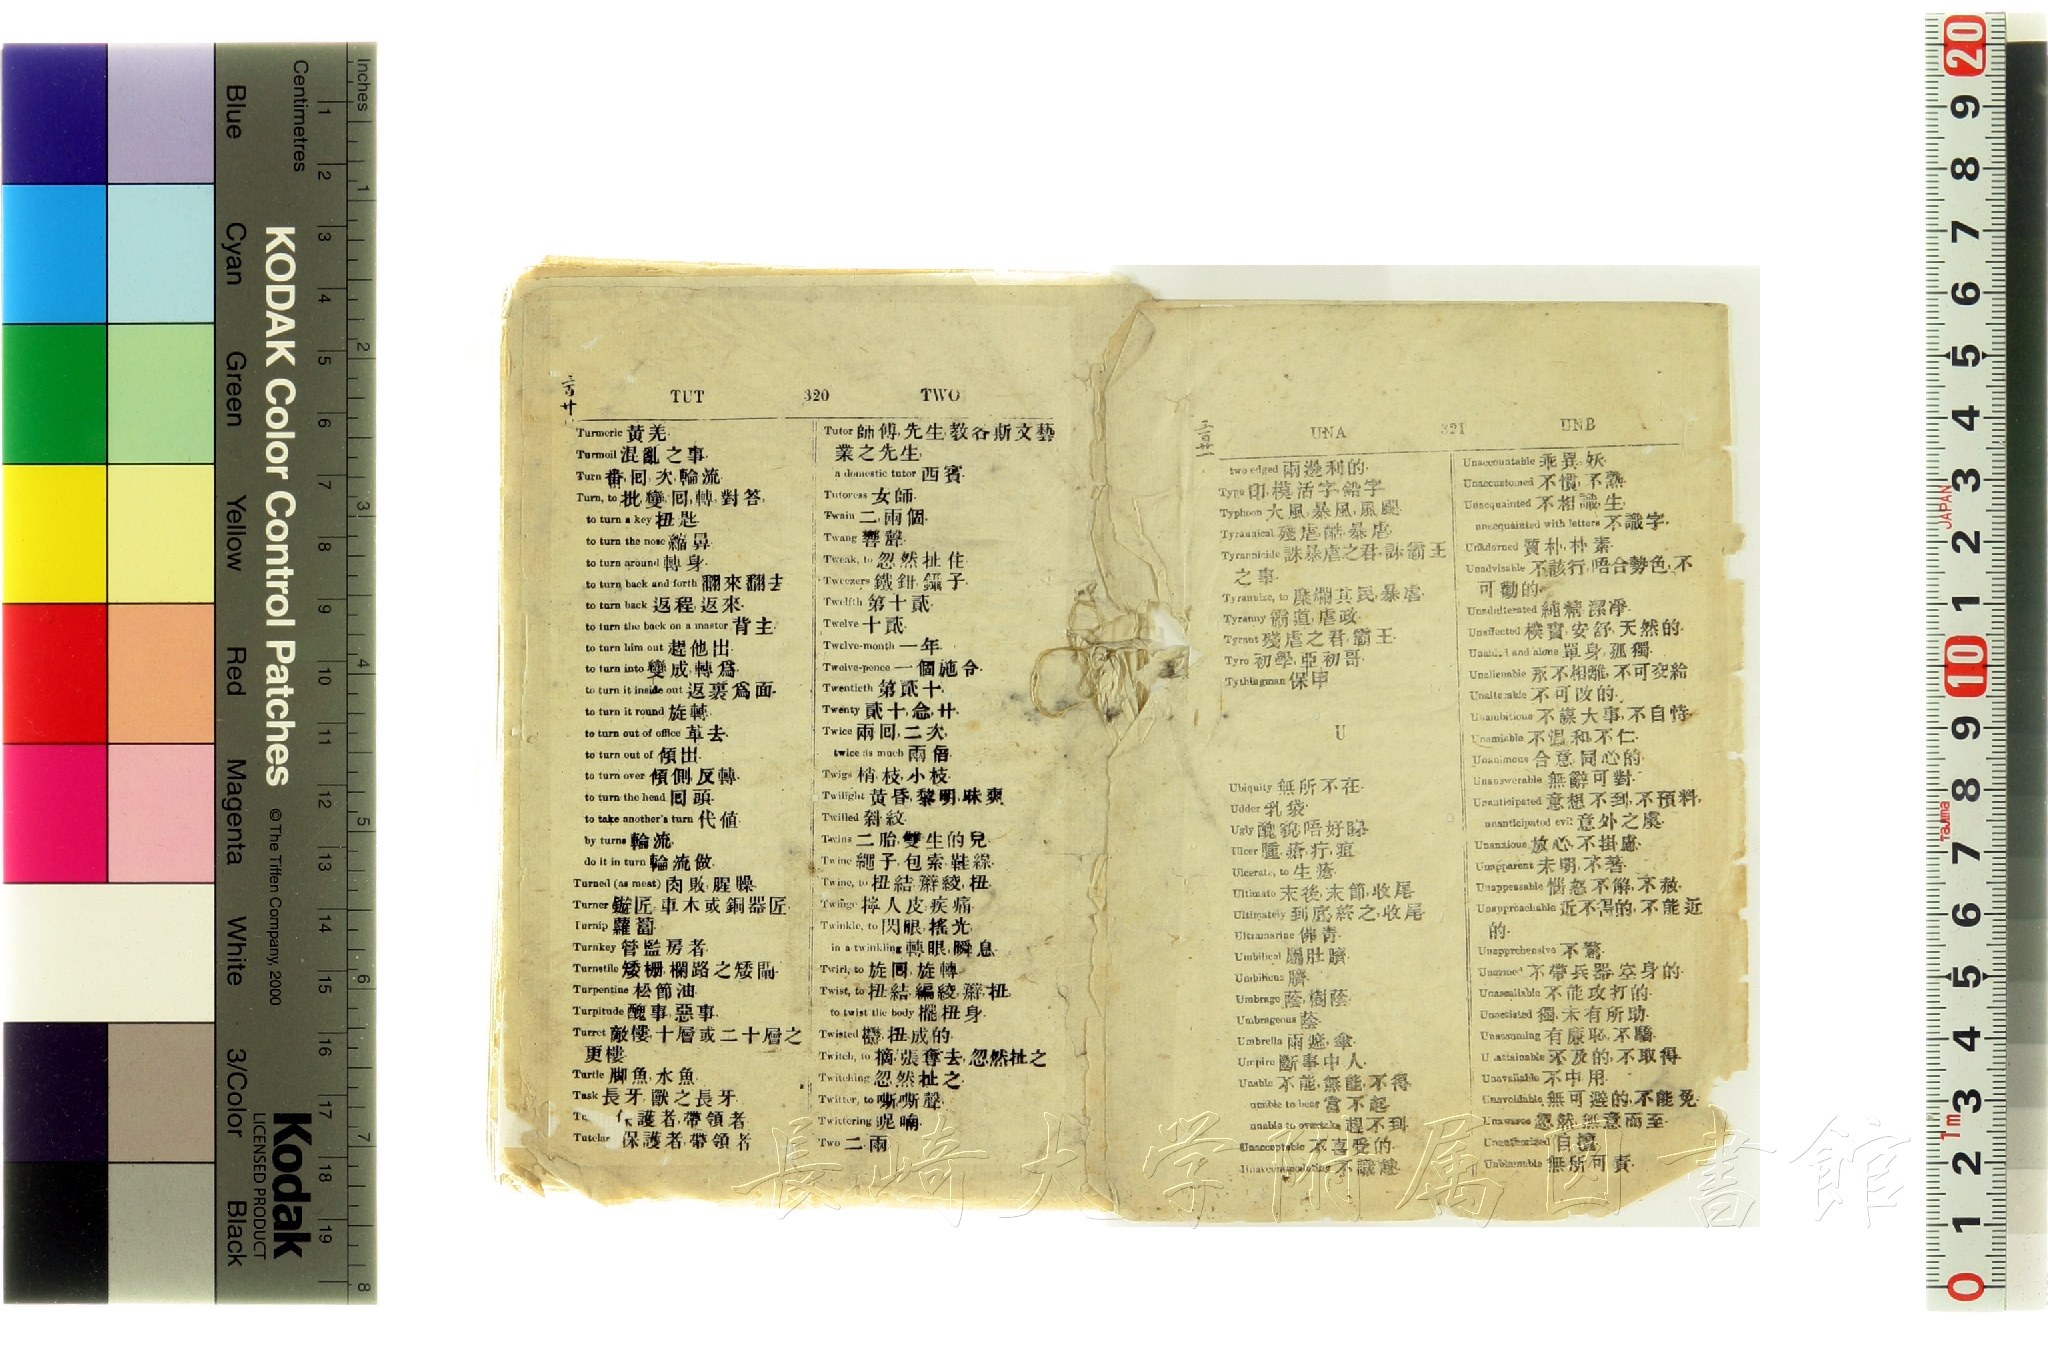 Inches
Centimetres
KODAK Color Control Patches
© The Tiffen Company, 2000
Blue
Cyan
Green
Yellow
Red
Magenta
White
3/Color
Black
Kodak
LICENSED PRODUCT
三百廿
TUT 320 TWO
Turmeric 黃羌.
Turmoil 混亂之事.
Turn 番, 囘, 次, 輪流.
Turn, to 批, 變, 囘, 轉, 對答,
to turn a key 扭匙.
to turn the nose 縮鼻.
to turn around 轉身.
to turn back and forth 翻來翻去
to turn back 返程, 返來.
to turn the back on a master 背主.
to turn him out 趕他出.
to turn into 變成, 轉爲.
to turn it inside out 返裏爲面.
to turn it round 旋轉.
to turn out of office 革去.
to turn out of 傾出.
to turn over 傾側, 反轉.
to turn the head 囘頭.
to take another's turn 代値.
by turns 輪流.
do it in turn 輪流做.
Turned (as meat) 肉敗, 腥臊.
Turner 鏇匠, 車木或銅器匠.
Turnip 蘿蔔.
Turnkey 管監房者.
Turnstile 矮柵, 欄路之矮閘.
Turpentine 松節油.
Turpitude 醜事, 惡事.
Turret 敵樓, 十層或二十層之
更樓.
Turtle 脚魚, 水魚.
Tusk 長牙, 獸之長牙.
保護者, 帶領者
Tutelar 保護者, 帶領者
Tutor 師傅, 先生, 敎各斯文藝
業之先生,
a domestic tutor 西賓.
Tutoress 女師.
Twain 二, 兩個.
Twang 響聲.
Tweak, to 忽然扯住
Tweezers 鐵鉗, 鑷子.
Twelfth 第十貳.
Twelve 十貳.
Twelve-month 一年.
Twelve-pence 一個施令.
Twentieth 第貳十.
Twenty 貳十, 念, 廿.
Twice 兩囘, 二次,
twice as much 兩倍.
Twigs 梢, 枝, 小枝.
Twilight 黃昏, 黎明, 昧爽
Twilled 斜紋.
Twins 二胎, 雙生的兒.
Twine 繩子, 包索, 鞋綫.
Twine, to 扭結, 辮綾, 扭.
Twinge 擰人皮, 疾痛.
Twinkle, to 閃眼, 搖光.
in a twinkling 轉眼, 瞬息.
Twirl, to 旋囘, 旋轉.
Twist, to 扭結, 編綾, 辮, 扯,
to twist the body 擺扭身.
Twisted 扭成的.
Twitch, to 摘, 張奪去, 忽然扯之
Twitching 忽然扯之.
Twitter, to 嘶嘶聲.
Twittering 呢喃.
Two 二, 兩
三百廿一
UNA 321 UNB
two edged 兩邊利的.
Type 印, 模, 活字, 鉛字.
Typhoon 大風, 暴風, 風颶.
Tyrannical 殘虐, 酷, 暴虐.
Tyrannicide 誅暴虐之君, 誅霸王
之事.
Tyrannize, to 糜爛其民, 暴虐.
Tyranny 霸道, 虐政.
Tyrant 殘虐之君, 霸王.
Tyro 初學, 亞初哥.
Tythingman 保甲.
U
Ubiquity 無所不在.
Udder 乳袋.
Ugly 醜貌, 唔好睇.
Ulcer 腫, 瘡, 疔, 疽.
Ulcerate, to 生瘡.
Ultimate 末後, 末節, 收尾.
Ultimately 到底, 終之, 收尾.
Ultramarine 佛青.
Umbilical 屬肚臍.
Umbilicus 臍.
Umbrage 蔭, 樹蔭.
Umbrageous 蔭.
Umbrella 雨遮, 傘.
Umpire 斷事中人.
Unable 不能, 無能, 不得.
unable to bear 當不起.
unable to overtake 趕不到.
Unacceptable 不喜受的.
Unaccommodating 不識趣.
Unaccountable 乖異, 妖.
Unaccustomed 不慣, 不熟.
Unacquainted 不相識, 生.
unacquainted with letters 不識字.
Unadorned 質朴, 朴素.
Unadvisable 不該行, 唔合勢色, 不
可動的.
Unadulterated 純精, 潔淨.
Unaffected 樸實, 安舒, 天然的.
Unaided and alone 單身, 孤獨.
Unalienable 永不相離, 不可交給
Unalterable 不可改的.
Unambitious 不謀大事, 不自恃.
Unamiable 不温和, 不仁.
Unanimous 合意, 同心的.
Unanswerable 無辭可對.
Unanticipated 意想不到, 不預料.
unanticipated evil 意外之虞.
Unanxious 放心, 不掛慮.
Unapparent 未明, 不著.
Unappeasable 惱怒不解, 不赦.
Unapproachable 近不得的, 不能近
的.
Unapprehensive 不驚.
Unarmed 不帶兵器, 空身的.
Unassailable 不能攻打的.
Unassisted 獨, 未有所助.
Unassuming 有廉恥, 不驕.
Unattainable 不及的, 不取得.
Unavailable 不中用.
Unavoidable 無可避的, 不能免.
Unawares 忽然, 無意而至.
Unauthorized 自擅.
Unblamable 無所可責.
長崎大学附属図書館
JAPAN
Tajima
1m